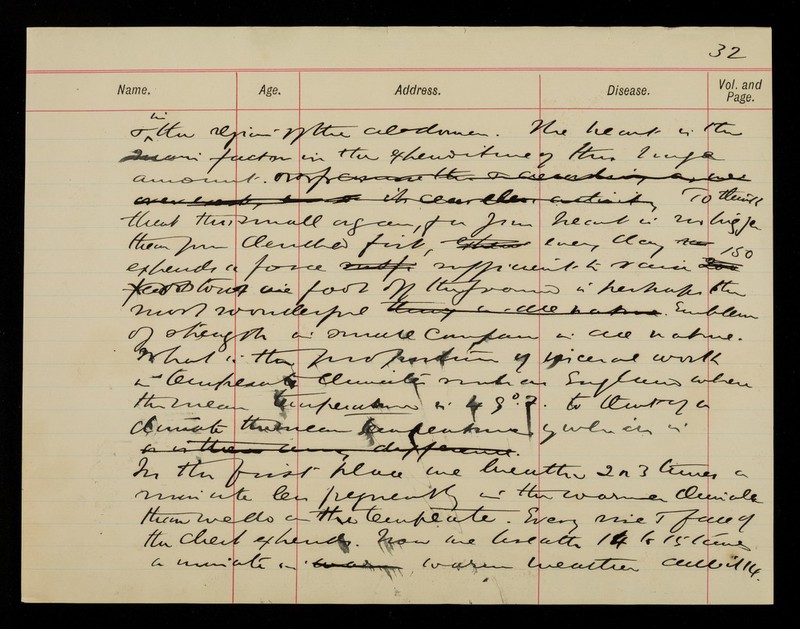 32
Name. Age. Address. Disease. Vol. and Page.
in
& the region of the abdomen. The heart is the
main factor in the expenditure of this large
amount. To think
that this small organ, for your heart is no bigger
than your clenched fist, every day
150
expends a force sufficient to raise
tons one foot off the ground is perhaps the
most wonderful Emblem
of strength in small compass in all nature.
What is the proportion of visceral work
in temperate climates such as England where
the mean temperature is 49°.7. to that of a
climate the mean temperature of which is
In the first place we breathe 2 or 3 times a
minute less frequently in the warmer climate
than we do in the temperate. Every rise & fall of
the chest expends. Now we breathe 14 to 15 times
a minute in warm weather call it 14.